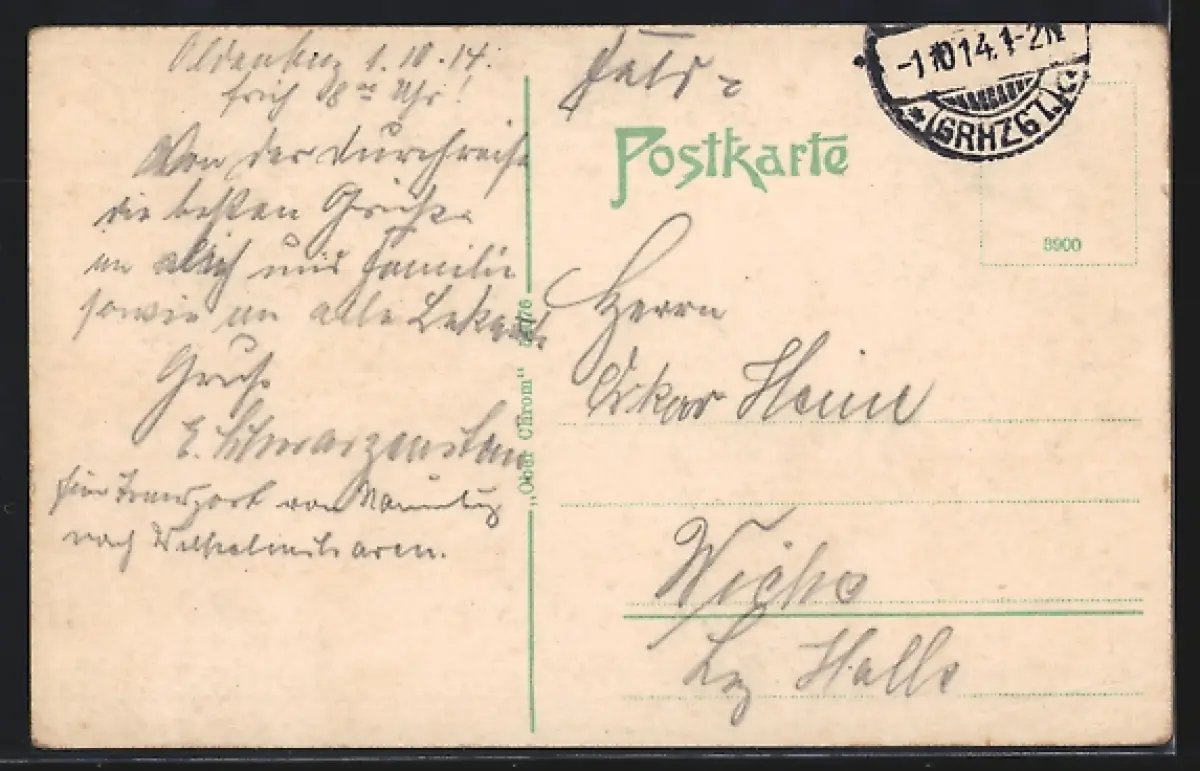 Oldenburg 1.10.14.
früh 8 Uhr!
Von der Durchreise
die besten Grüße
an Dich und Familie
sowie an alle Bekannte
Gruß
E. Schwarzenstein
für Transport von
nach Wilhelmshaven.
"Ober Chrom"
Feld-
-1.10 14. 1-2N
*(GRHZGT.)C
Postkarte
3900
Herrn
Oskar Heine
Wiehe
Bz Halle